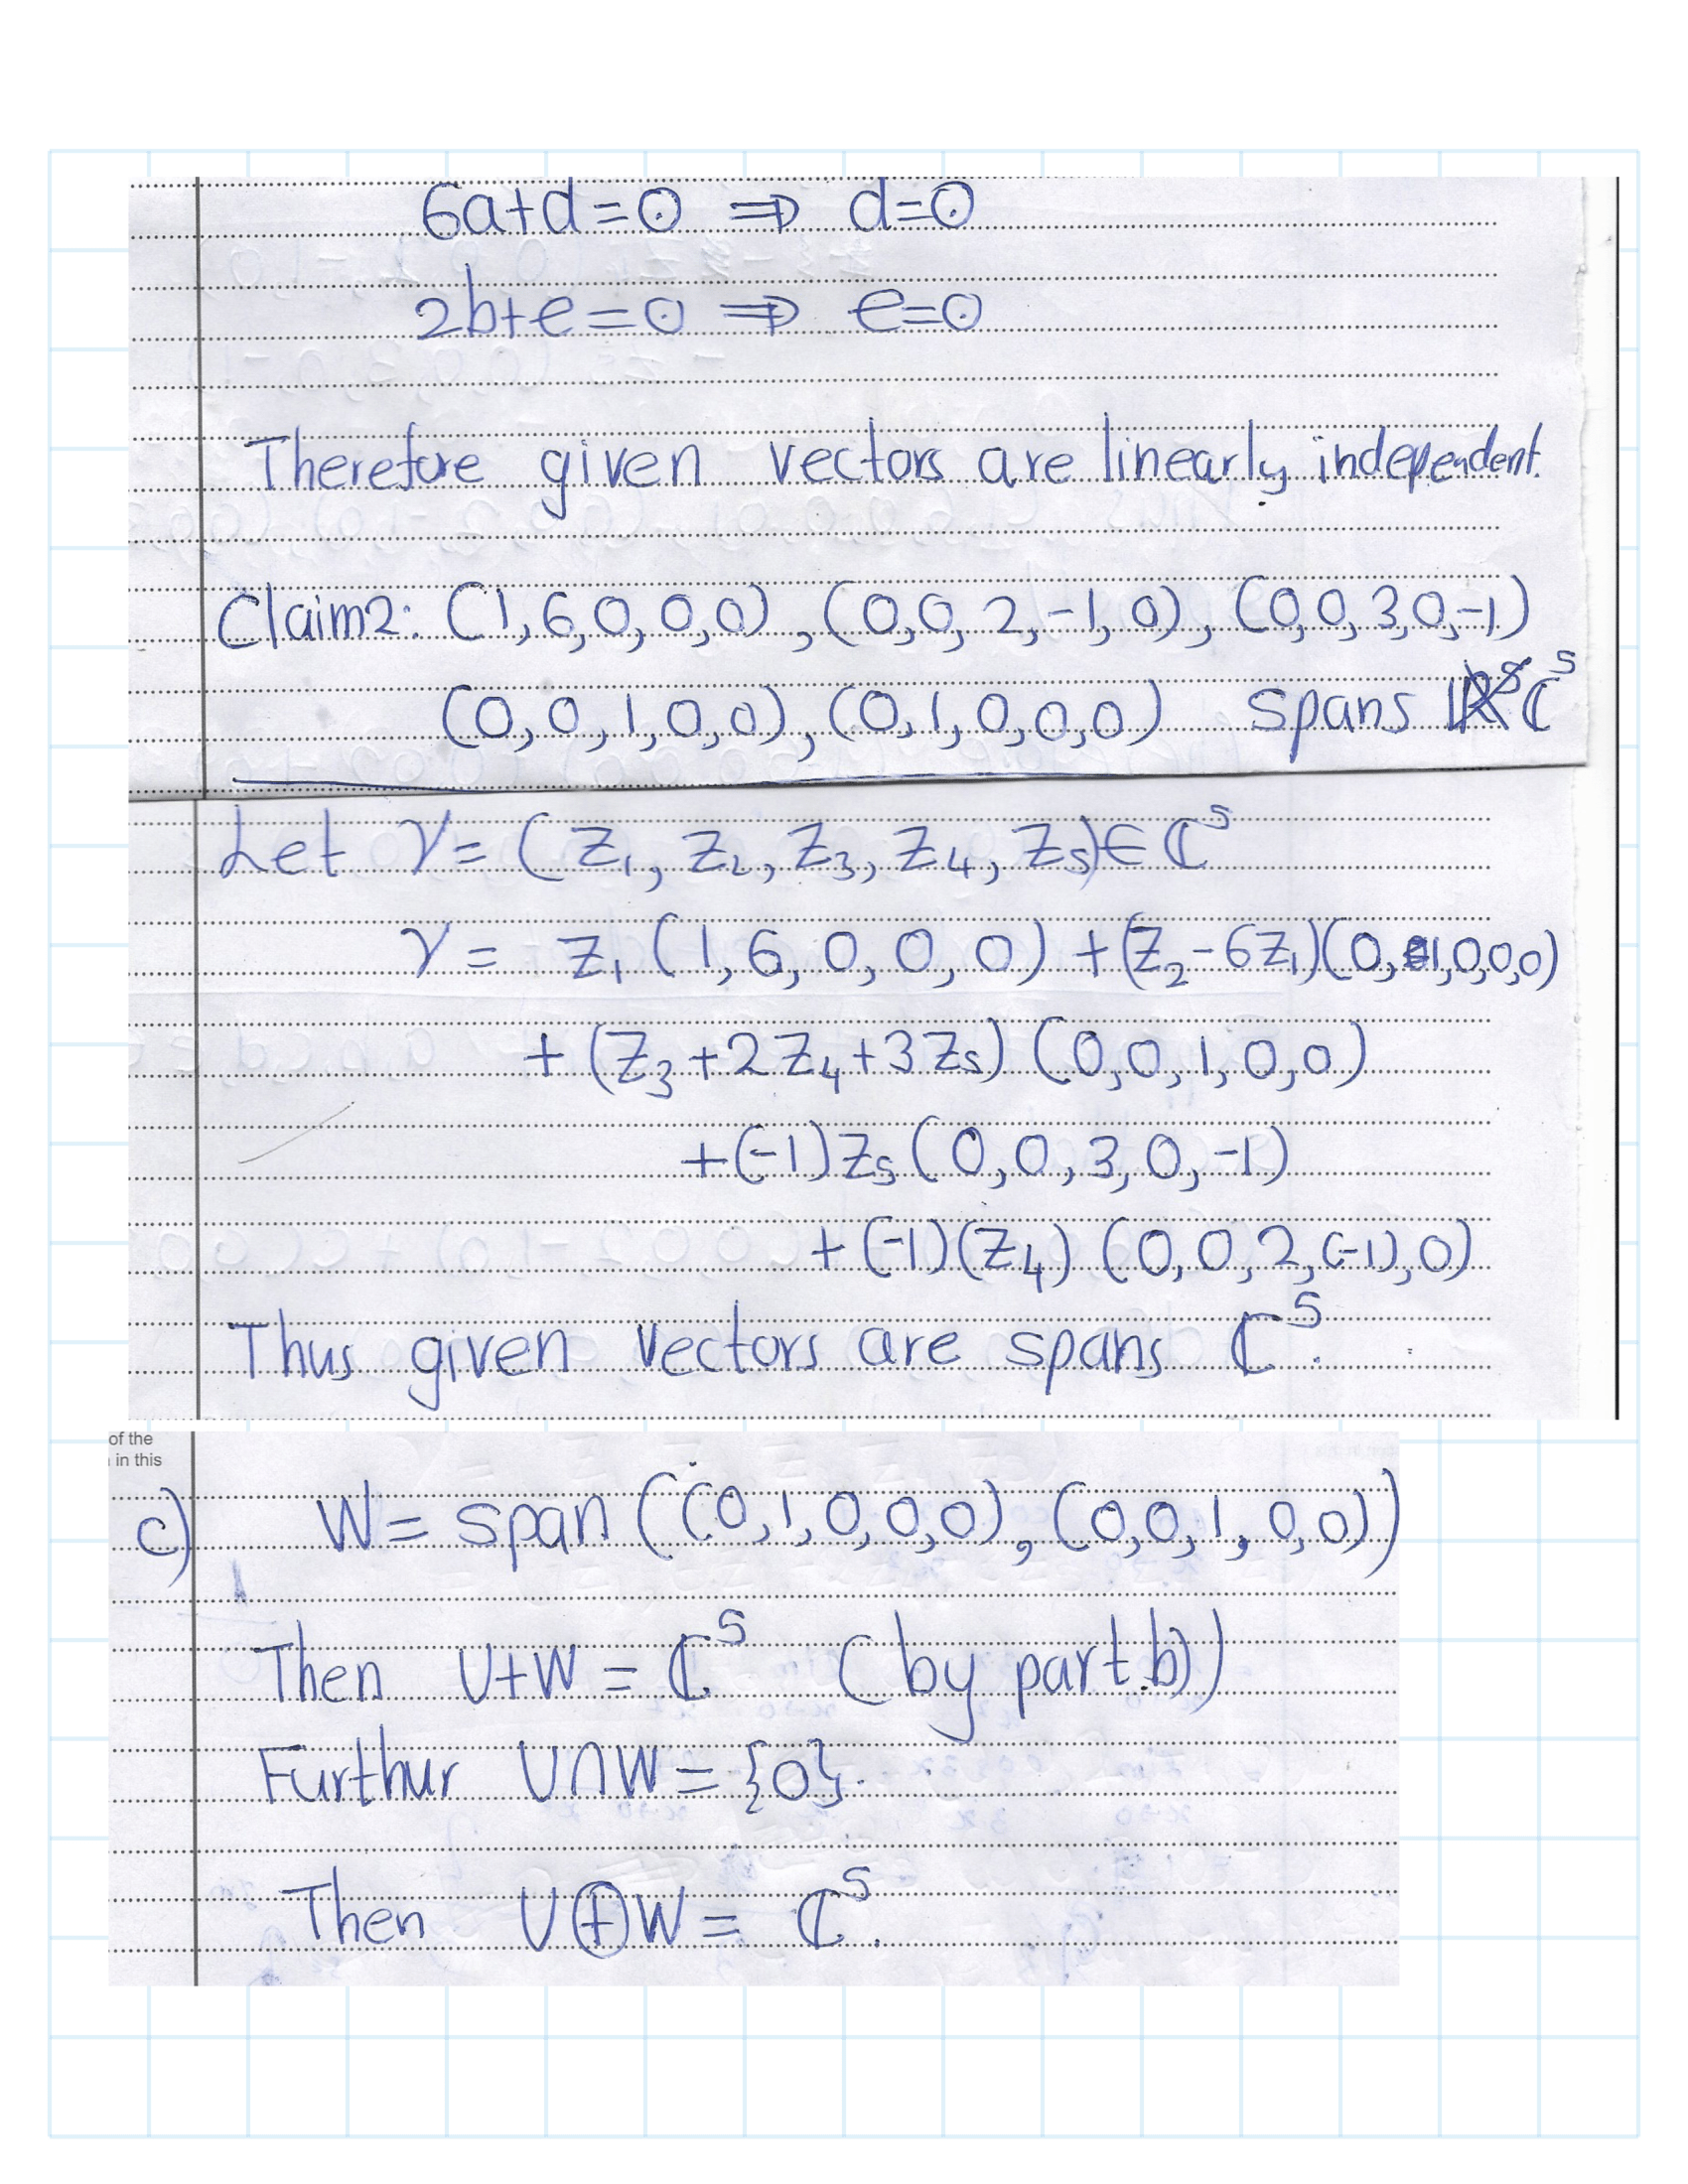 6a+d=0 ⇒ d=0
2b+e=0 ⇒ e=0
Therefore given vectors are linearly independent.
Claim2: (1,6,0,0,0), (0,0,2,-1,0), (0,0,3,0,-1)
(0,0,1,0,0), (0,1,0,0,0) spans ℂ⁵
Let V = (z₁, z₂, z₃, z₄, z₅) ∈ ℂ⁵
V = z₁ (1,6,0,0,0) + (z₂-6z₁)(0,1,0,0,0)
+ (z₃+2z₄+3z₅) (0,0,1,0,0)
+(-1)z₅ (0,0,3,0,-1)
+ (-1)(z₄) (0,0,2,(-1),0)
Thus given vectors are spans ℂ⁵.
of the
in this
c) W = span ((0,1,0,0,0), (0,0,1,0,0))
Then U+W = ℂ⁵ (by part.b))
Furthur U∩W = {0}.
Then U⊕W = ℂ⁵.